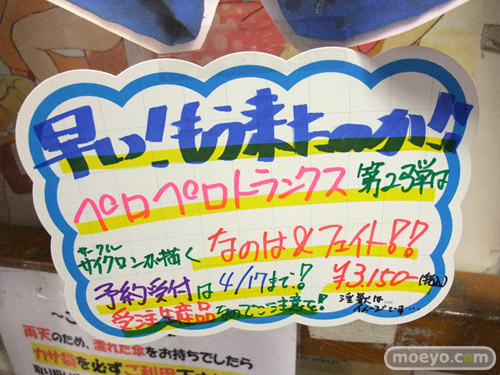 早い!もう来たーか!!
ペロペロトランクス 第2弾は
サークル
サイクロンが描く なのは&フェイト!!
予約受付は4/17まで! ¥3,150-(税込)
受注生産品なのでご注意を!
注意は
イメージです…
雨天のため、濡れた傘をお持ちでしたら
カサ袋を必ずご利用下さい
moeyo.com